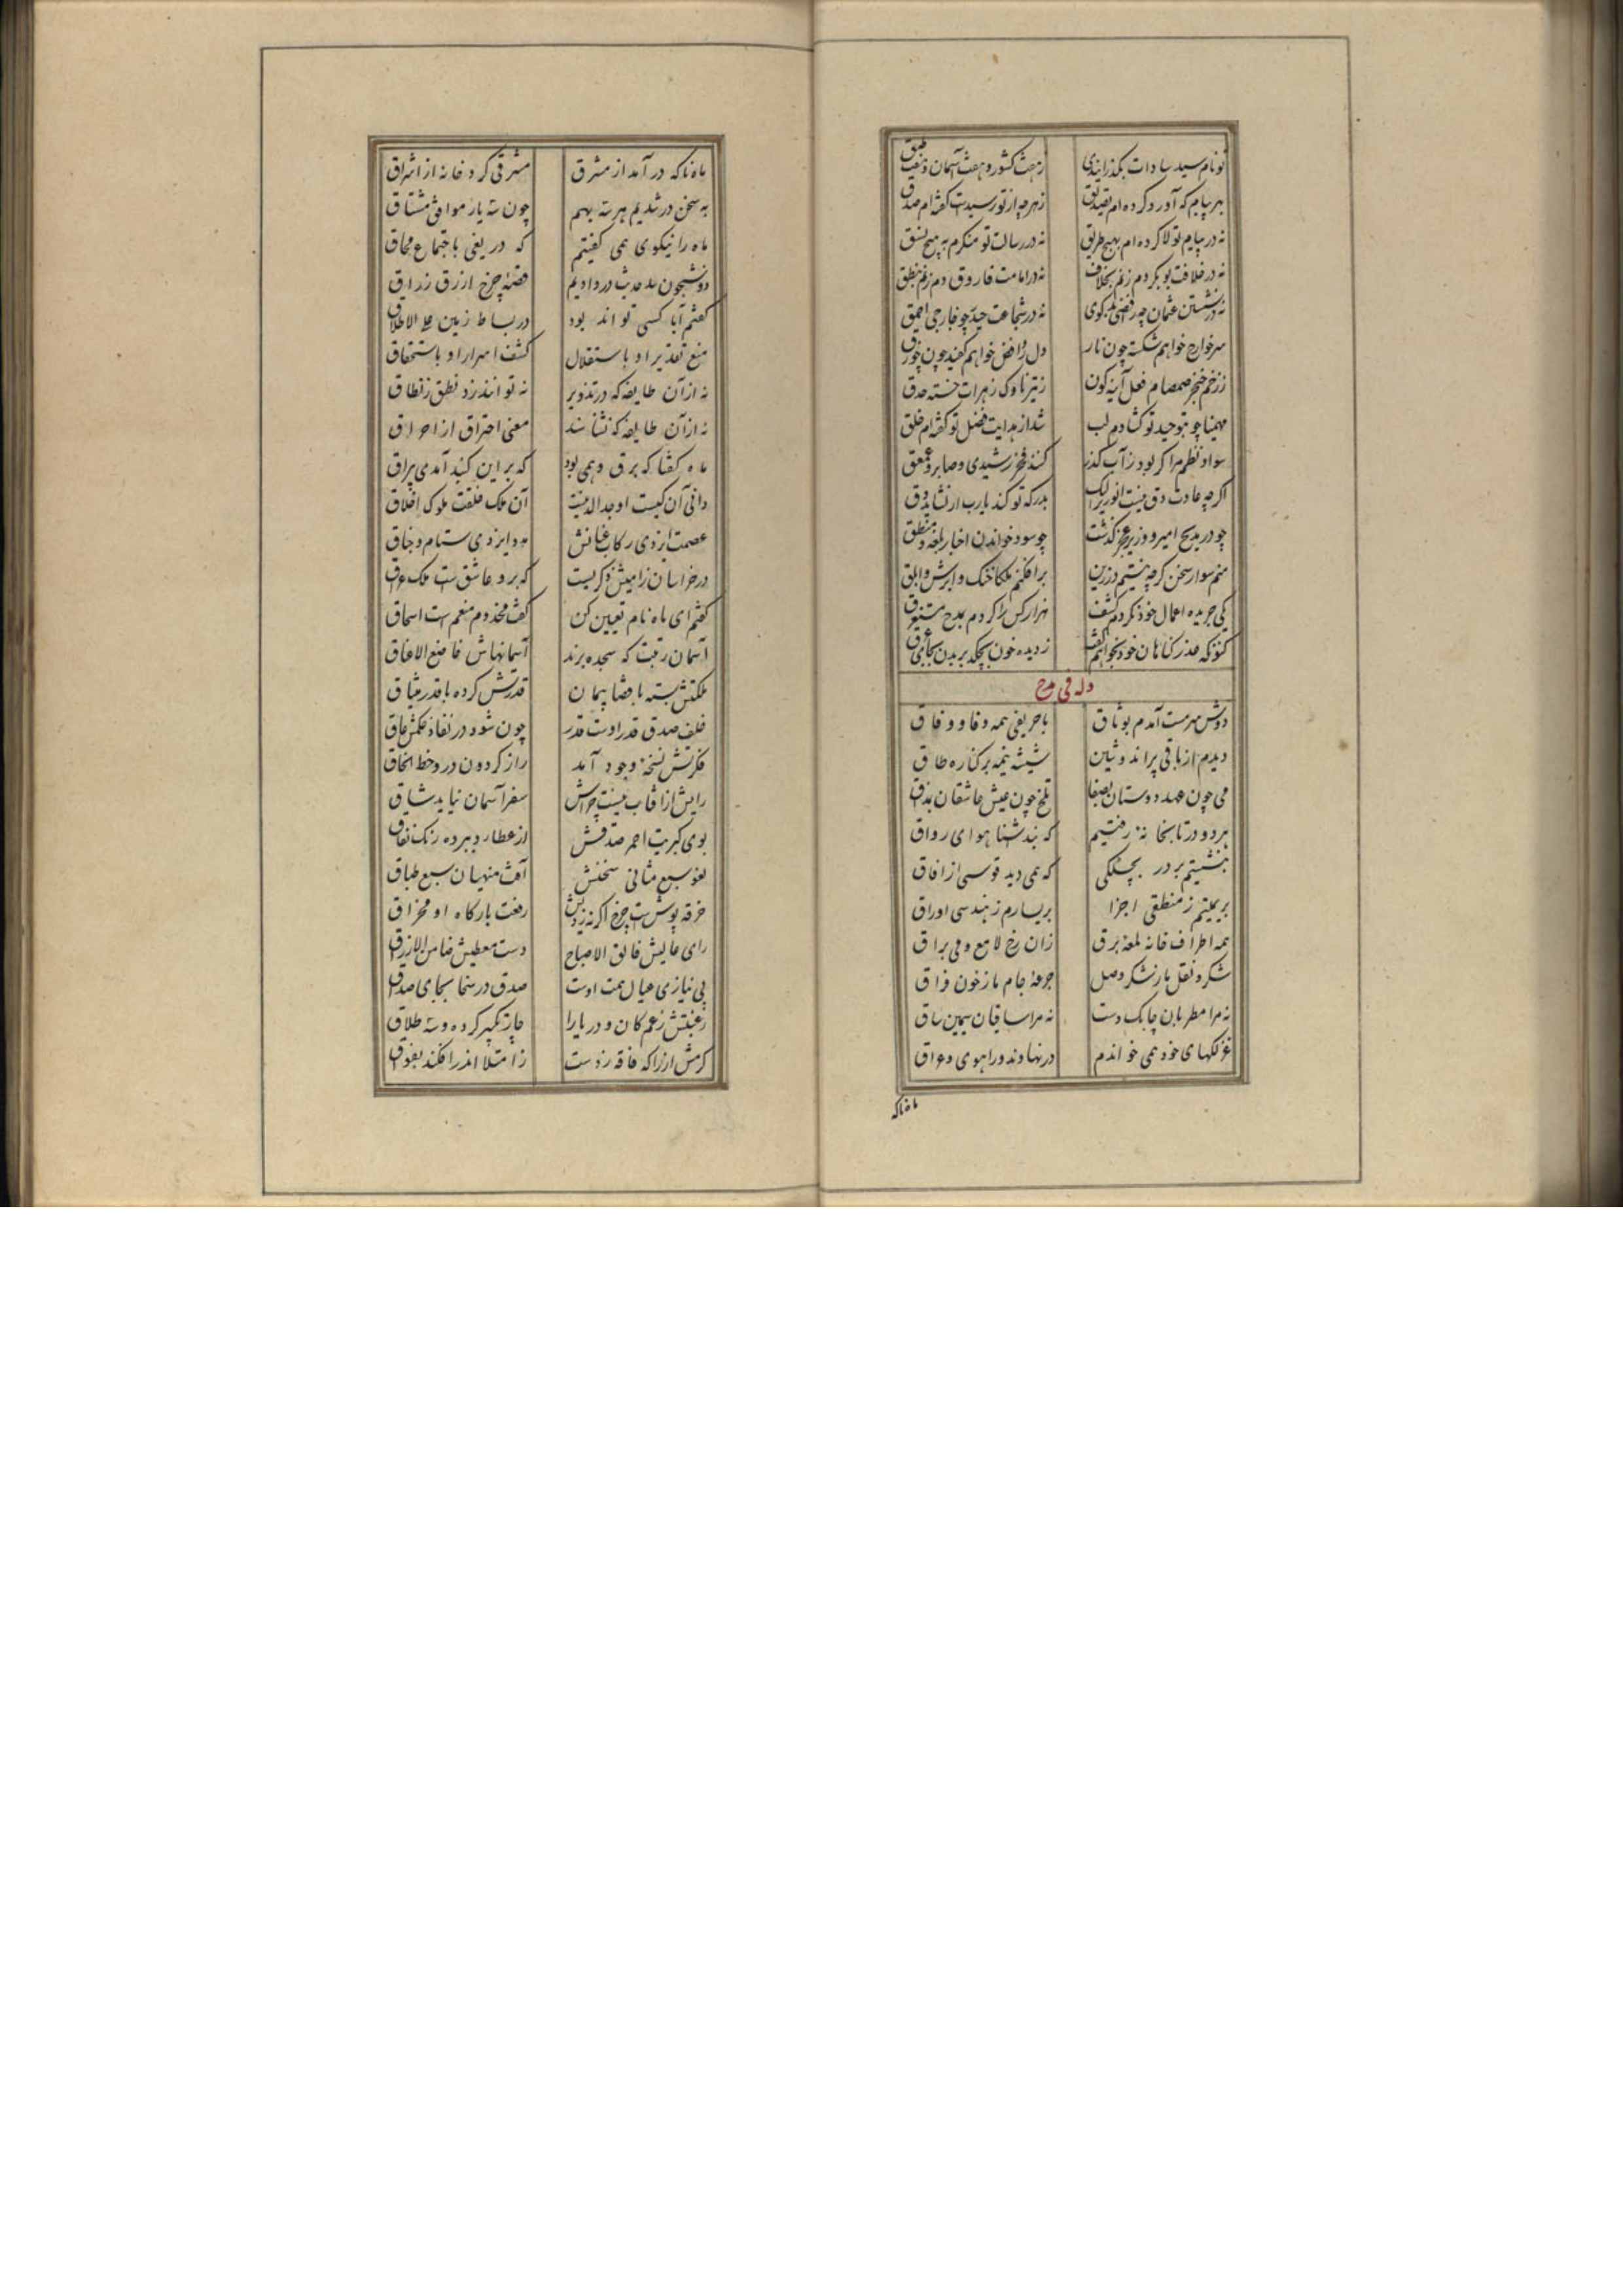 تو نام سید سادات بگذرانیدی ز هفت کشور و هفت آسمان و هفت طبق
بهر پیام که آورد کرده‌ام تصدیق ز هرچه از تو رسیدت گفته‌ام صدق
نه در پیام تو لا کرده‌ام بهیچ طریق نه در رسالت تو منکرم به هیچ نسق
نه در خلافت بوبکر دم زنم بخلاف نه در امامت فاروق دم زنم بنطق
نه در نشستن عثمان چو رافضی بدگوی نه در شجاعت حیدر چو خارجی احمق
سر خوارج خواهم شکسته چون نار دل روافض خواهم کفیده چون جوزق
ز زخم خنجر صمصام فعل آینه‌گون ز تیر ناوک زهرات خسته حدق
مهیمنا چو بتوحید تو گشادم لب شد از هدایت فضل تو گفته‌ام خلق
سواد نظم مرا گر بود ز آب گذر کند فخر رشیدی و صابر و عمعق
اگرچه عادت دق نیست انوری را لیک بدرگه تو کند یارب ار نشاید دق
چو در مدیح امیر و وزیر عمر گذشت چه سود خواندن اخبار بلغه و منطق
منم سوار سخن گرچه نیستم در زین برافکنم ملکا خنگ و ابرش و ابلق
یکی جریده اعمال خود نکردم کشف هزار کس را کردم بمدح مستغرق
کنون که عذر گناهان خود بخواهم گفت ز دیده خون بچکد بر بدن بجای عرق
وله فی مدح
دوش سرمست آمدم بوثاق با حریفی همه وفا و وفاق
دیدم از باقی پرندوشین شیشه نیمه بر کناره طاق
می چون عهد دوستان بصفا تلخ چون عیش عاشقان بمذاق
هر دو در تابخانه رفتیم که نبد شنا هوای رواق
بنشستیم بر در بچگکی که همی دید قوسی از افاق
بر یمینم ز منطقی اجزا بر یسارم ز هندسی اوراق
همه اطراف خانه لمعه برق زان رخ لامع و می براق
شکر و نقل ما ز شکر وصل جرعه جام ما ز خون فراق
نه مرا مطربان چابک دست نه مرا ساقیان سیمین ساق
غزلکهای خود همی خواندم در نهاوند و راهوی و عراق
ماه ناگه
ماه ناگه در آمد از مشرق مشرقی کرد خانه از اشراق
به سخن در شدیم هر سه بهم چون سه یار موافق مشتاق
ماه را نیکوی همی گفتیم که دریغی باجتماع محاق
قصه چرخ ازرق زراق
گفتم آیا کسی تواند بود در بساط زمین علی الاطلاق
منع تقدیر او باستقلال کشف اسرار او باستحقاق
نه از آن طایفه که در تذویر نه توانند زد نطق ز نطاق
نه از آن طایفه که نشناسند معنی احتراق از احراق
ماه گفتا که برق وهمی بود که بر این گنبد آمدی براق
دانی آن کیست اوحدالدینست آن ملک خلقت ملوک اخلاق
عصمت ایزدی رکاب عنانش مدد ایزدی ستام و جناق
در خراسان ز امینش ذکریست که برو عاشق ست ملک عراق
گفتم ای ماه نام تعیین کن گفت مخدوم منعمست اسحاق
آسمان رتبت که سجده برند آسمانهاش خاضع الاعناق
ملکتش بسته با قضا پیمان قدرتش کرده با قدر میثاق
خلف صدق قدر اوست قدر چون شود در نفاذ حکمش عاق
فکرتش نسخه وجود آمد راز گردون درو خط الحاق
رایش از آفتاب نیست جراش سفر آسمان نیاید شاق
بوی کبریت احمر صدقش از عطارد ببرده رنگ نفاق
لغو سبع مثانی سخنش آفت منهیان سبع طباق
خرقه پوش ست چرخ اگر نه زدیش رفعت بارگاه او مخراق
رای عالیش فالق الاصباح دست معطیش ضامن الارزاق
بی نیازی عیال همت اوست صدق در سخا بجای صداق
رغبتش زعم کان و دریا را چار تکبیر کرده و سه طلاق
کرمش از راکه فاقه زدست ز امتلا اندر افکند بفواق